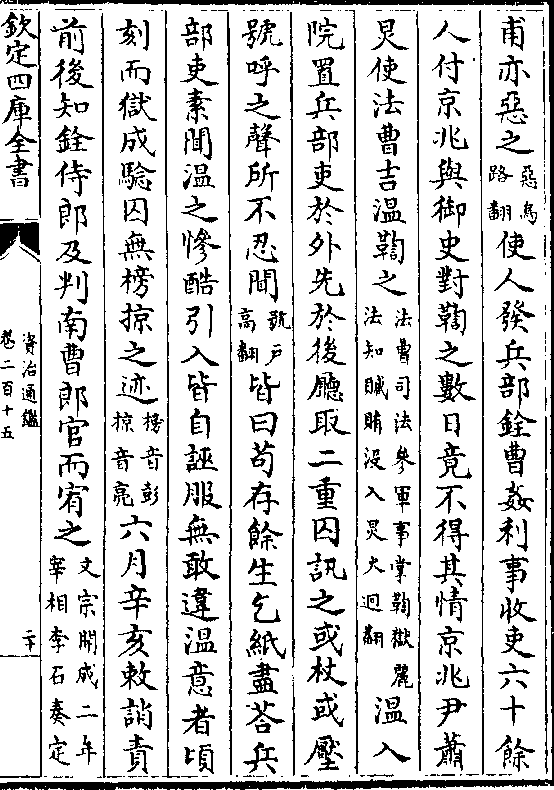 甫亦惡之惡烏路翻使人發兵部銓曹姦利事收吏六十餘
人付京兆與御史對鞫之數日竟不得其情京兆尹蕭
炅使法曹吉溫鞫之法曹司法參軍事掌鞫獄麗法知贓賄没入炅火迥翻溫入
院置兵部吏於外先於後㕔取二重囚訊之或杖或壓
號呼之聲所不忍聞號戸高翻皆曰苟存餘生乞紙盡荅兵
部吏素聞溫之慘酷引入皆自誣服無敢違溫意者頃
刻而獄成驗囚無榜掠之迹榜音彭掠音亮六月辛亥敕誚責
前後知銓侍郎及判南曹郎官而宥之文宗開成二年宰相李石奏定
欽定四庫全書
資治通鑑
卷二百十五
二十